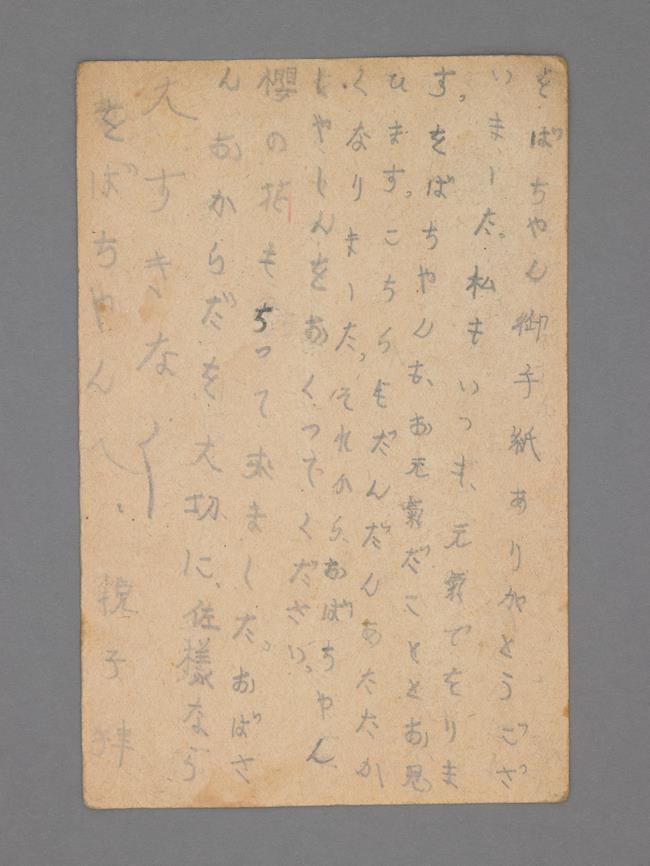 をばちやん御手紙ありがとうござ
いました。私もいつも、元氣でをりま
す。をばちやんも、お元氣だことゝお思
ひます。こちらもだんだんあたたか
くなりました。それから、おばちやん
しやしんをおくつてください。
櫻の花もちつて来ました。おばさ
んおからだを大切に、佐様なら
大すきな〱
をばちやんへ、 悦子拝